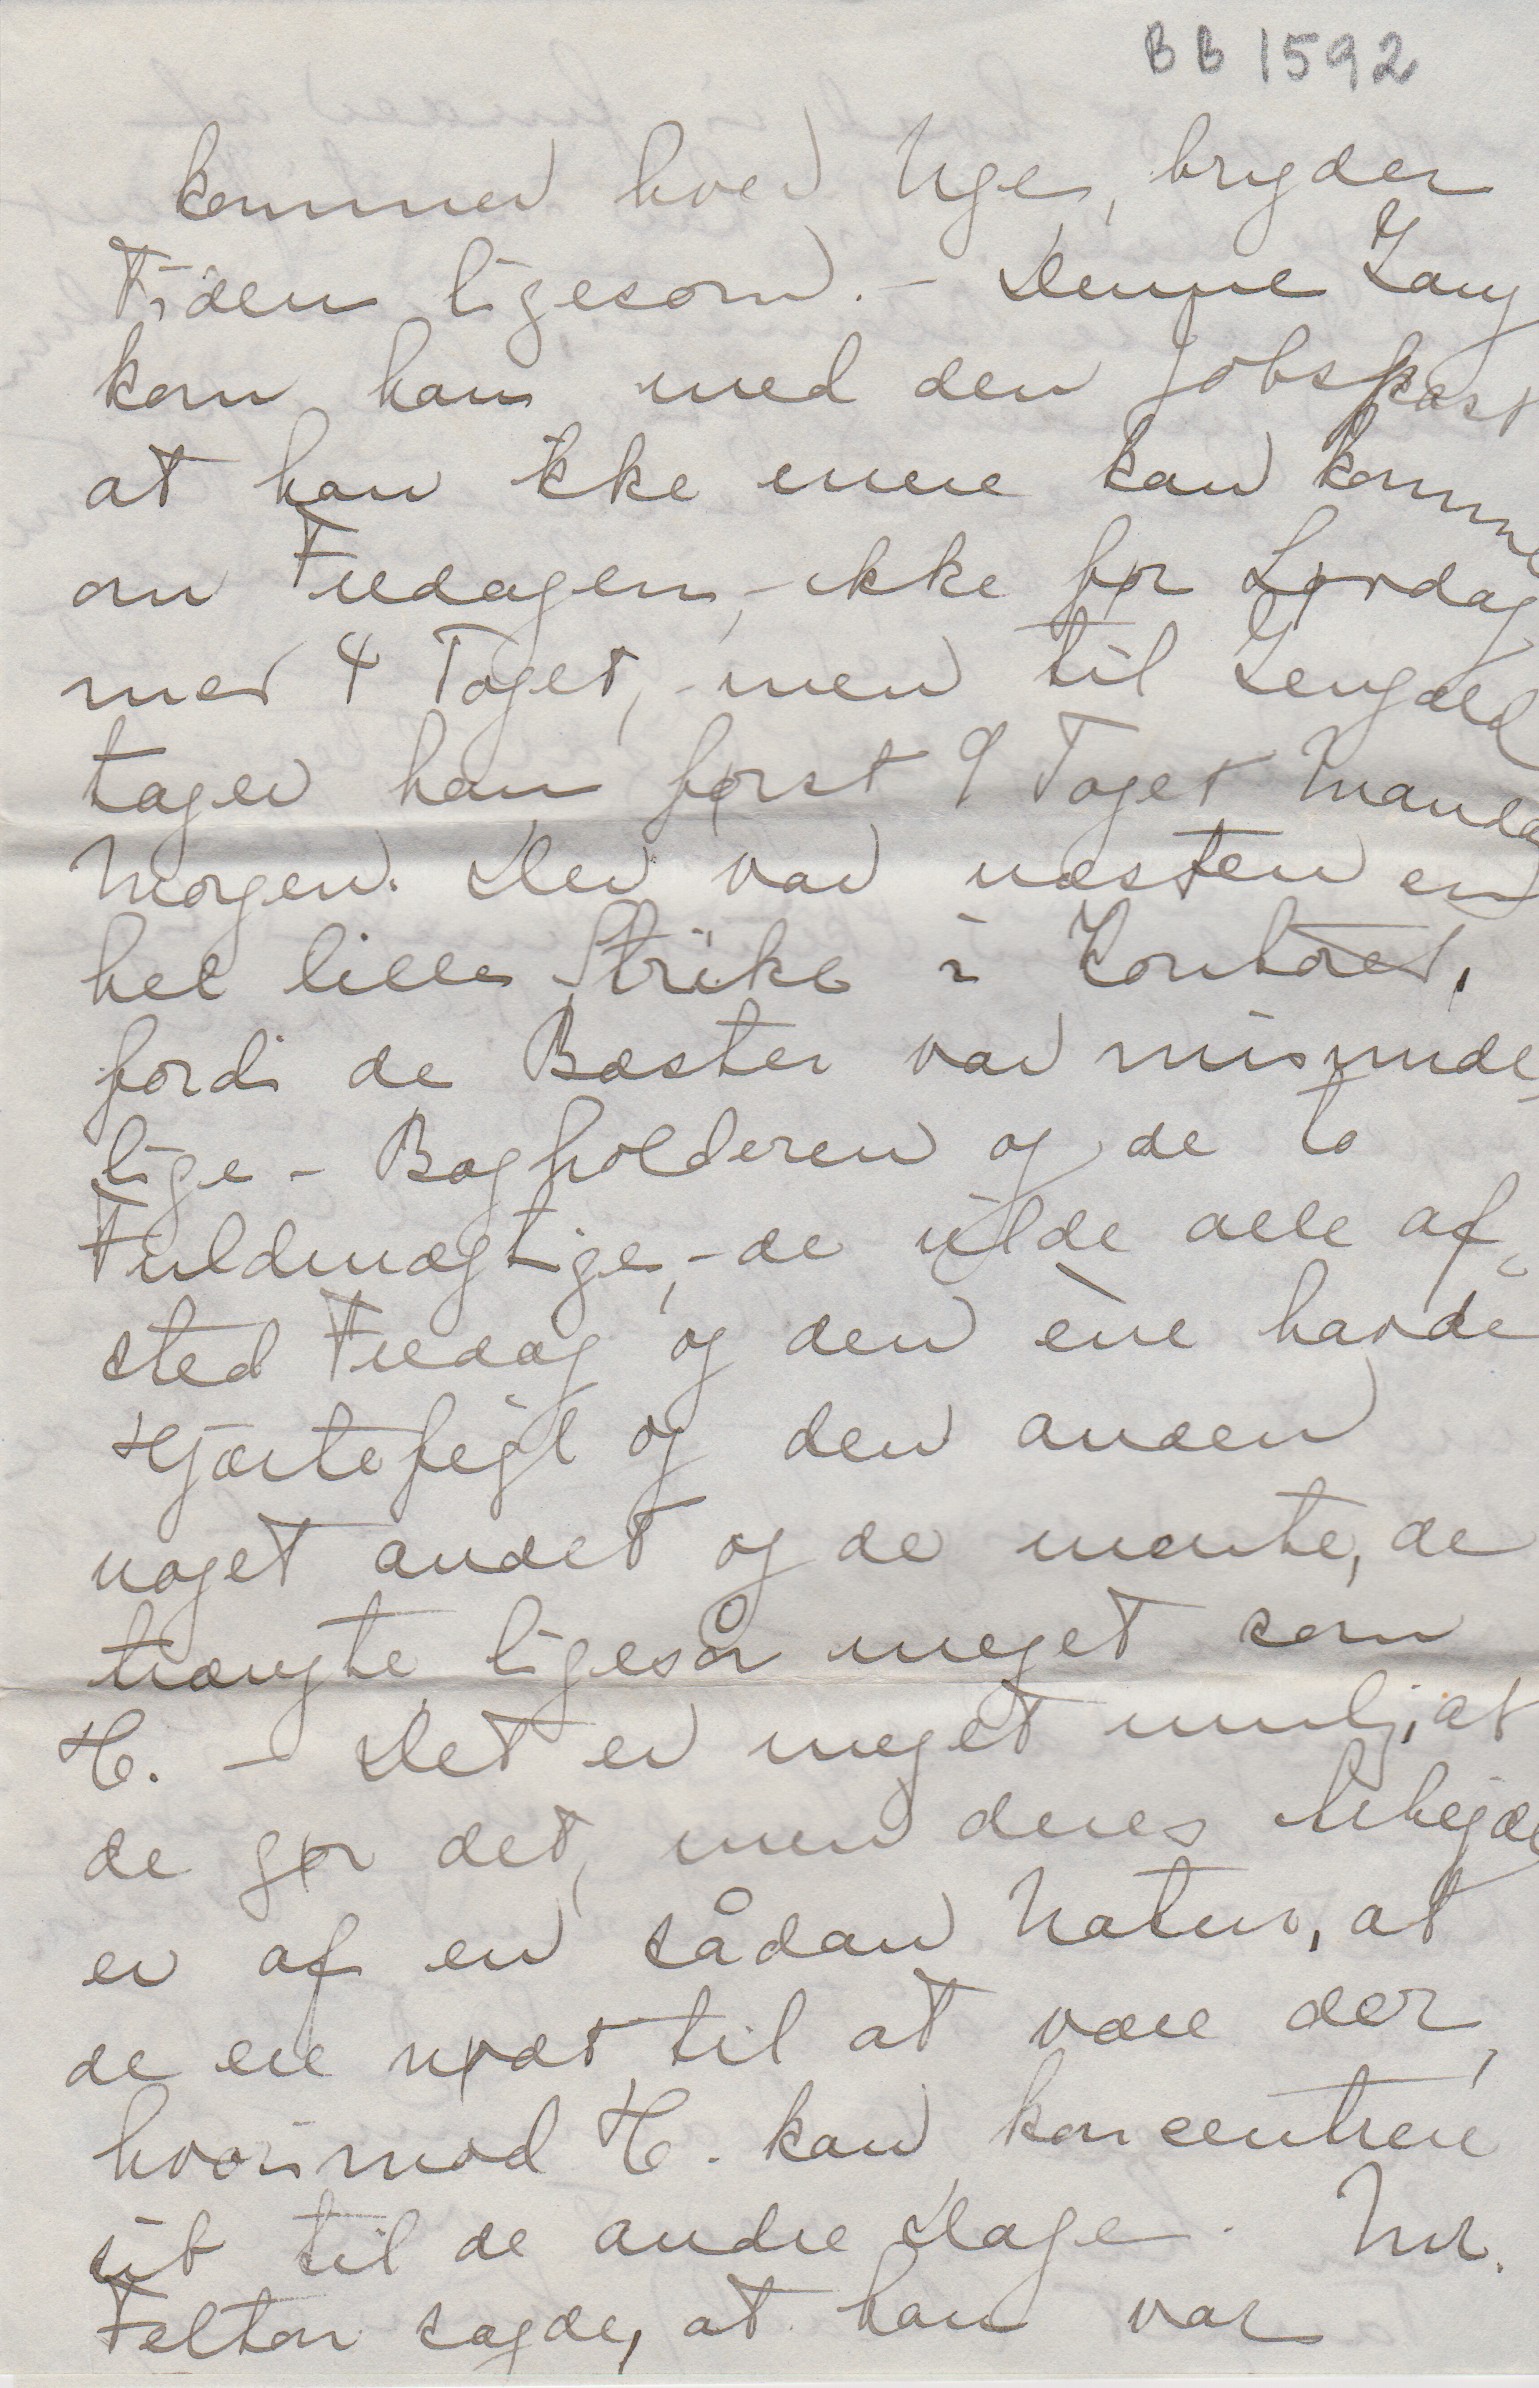 BB 1592
kommer hver Uge, bryder
Tiden ligesom. – Denne Gang
kom han med den Jobspost
at han ikke mere kan komme
om Fredagen, – ikke før Lørdag
med 4 Toget, – men til Gengæld
tager han først 9 Toget Mandag
Morgen. Der var næsten en
hel lille Strike i Kontoret,
fordi de Bæster var misunde-
lige – Bogholderen og de to
Fuldmægtige, – de vilde alle af-
sted Fredag og den ene havde
Hjærtefejl og den anden
noget andet og de mente, de
trængte ligeså meget som
H. – Det er meget mulig, at
de gør det, men deres Arbejde
er af en sådan Natur, at
de ere nødt til at være der,
hvorimod H. kan koncentrere
sit til de andre Dage. Mr.
Felton sagde, at han var